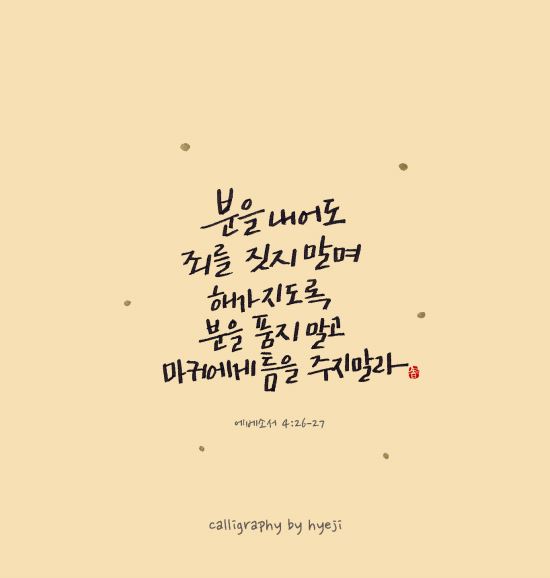 분을 내어도
죄를 짓지 말며
해가 지도록
분을 품지 말고
마귀에게 틈을 주지말라
에베소서 4:26-27
calligraphy by hyeji